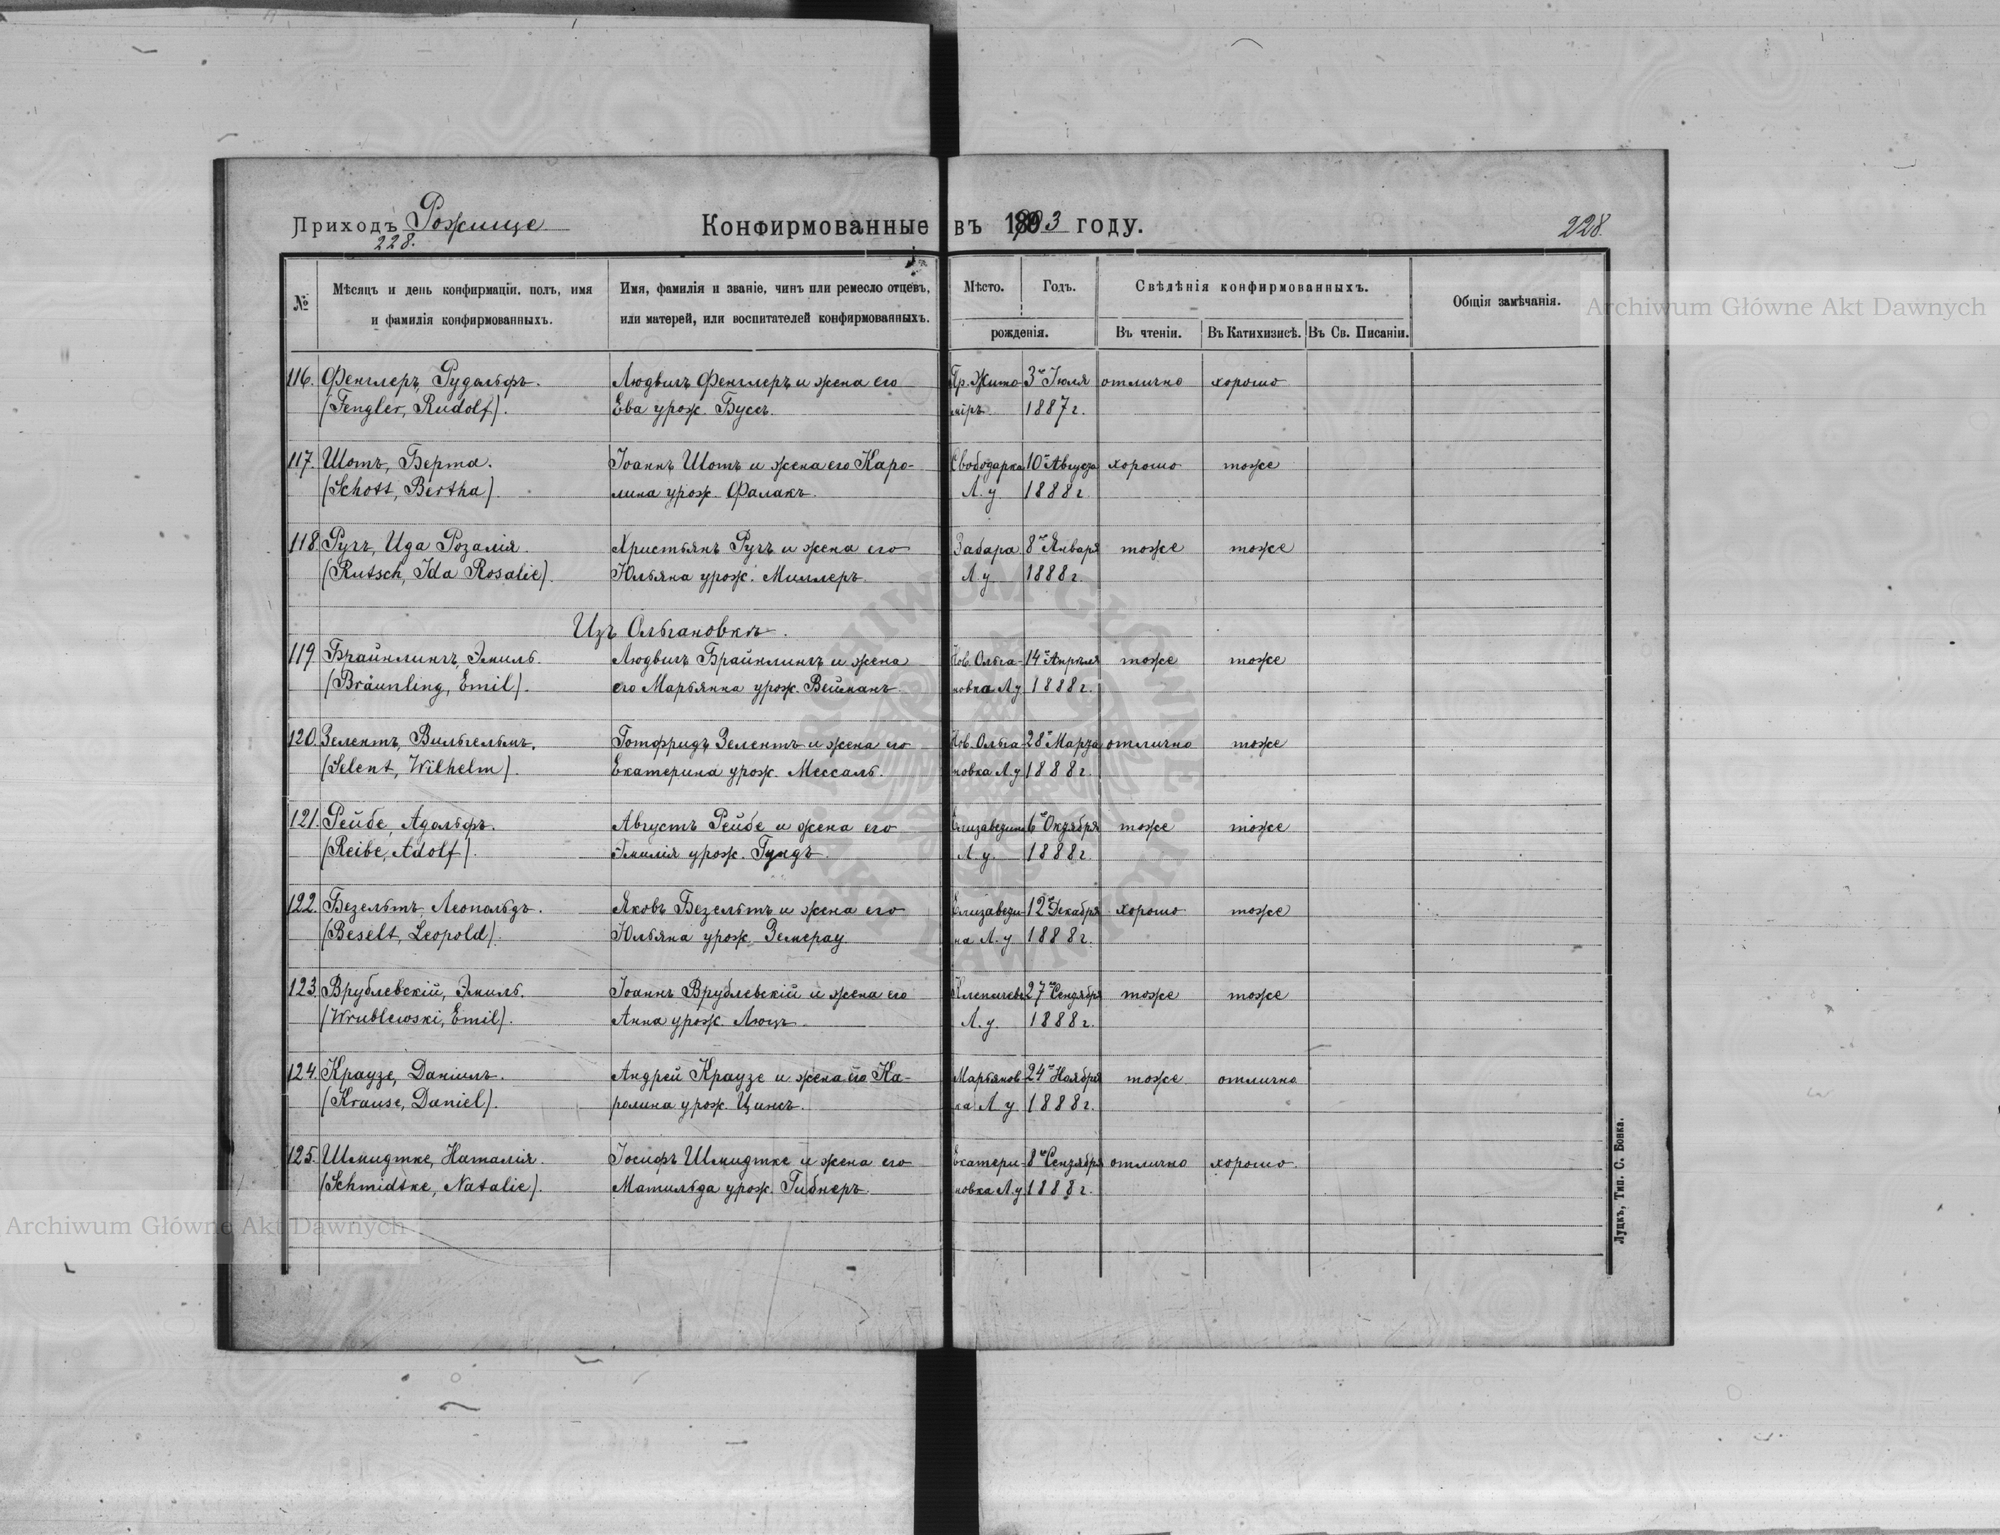 Приходъ Рожище
228.
Конфирмованные въ 1903 году.
228.
№
Мѣсяцъ и день конфирмаціи, полъ, имя
и фамилія конфирмованныхъ.
Имя, фамилія и званіе, чинъ или ремесло отцевъ,
или матерей, или воспитателей конфирмованныхъ.
Мѣсто. Годъ.
рожденія.
Свѣдѣнія конфирмованныхъ.
Въ чтеніи. Въ Катихизисѣ. Въ Св. Писаніи.
Общія замѣчанія.
116. Фенглеръ, Рудольфъ. Людвигъ Фенглеръ и жена его Пр. Жито- 3го Іюля отлично хорошо
(Fengler, Rudolf). Ева урож. Буссъ. міръ. 1887 г.
117. Шотъ, Берта. Іоаннъ Шотъ и жена его Каро- Свободарка 10го Августа хорошо тоже
(Schott, Bertha). лина урож. Фалакъ. Л. у. 1888 г.
118. Ручъ, Ида Розалія. Христьянъ Ручъ и жена его Забара 8го Января тоже тоже
(Rutsch, Ida Rosalie). Юльяна урож. Миллеръ. Л. у. 1888 г.
Изъ Ольгановкѣ.
119. Брайнлингъ, Эмиль. Людвигъ Брайнлингъ и жена Нов. Ольга- 14го Апрѣля тоже тоже
(Bräunling, Emil). его Марьянна урож. Вейманъ. новка Л. у. 1888 г.
120. Зелентъ, Вильгельмъ. Готфридъ Зелентъ и жена его Нов. Ольга- 28го Марта отлично тоже
(Selent, Wilhelm). Екатерина урож. Мессаль. новка Л. у. 1888 г.
121. Рейбе, Адольфъ. Августъ Рейбе и жена его 6го Октября тоже тоже
(Reibe, Adolf). Эмилія урож. Гундъ. Л. у. 1888 г.
122. Безельтъ, Леопольдъ. Яковъ Безельтъ и жена его Елизавети- 12го Декабря хорошо тоже
(Beselt, Leopold). Юльяна урож. Земерау. на Л. у. 1888 г.
123. Врублевскій, Эмиль. Іоаннъ Врублевскій и жена его 27го Сентября тоже тоже
(Wrublewski, Emil). Анна урож. Люцъ. Л. у. 1888 г.
124. Краузе, Даніилъ. Андрей Краузе и жена его Ка- Марьянов- 24го Ноября тоже отлично
(Krause, Daniel). ролина урож. Цинсъ. ка Л. у. 1888 г.
125. Шмидтке, Наталія. Іосифъ Шмидтке и жена его Екатери- 8го Сентября отлично хорошо
(Schmidtke, Natalie). Матильда урож. Гибнеръ. новка Л. у. 1888 г.
Луцкъ, Тип. С. Бовка.
Archiwum Główne Akt Dawnych
Archiwum Główne Akt Dawnych
ARCHIWUM GŁÓWNE AKT DAWNYCH